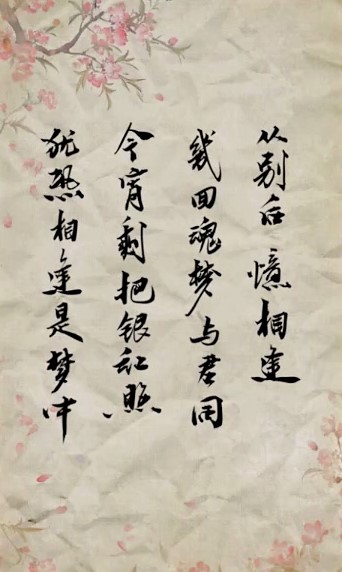 从别后 憶相逢
幾回魂梦与君同
今宵剩把银红照
犹恐相逢是梦中